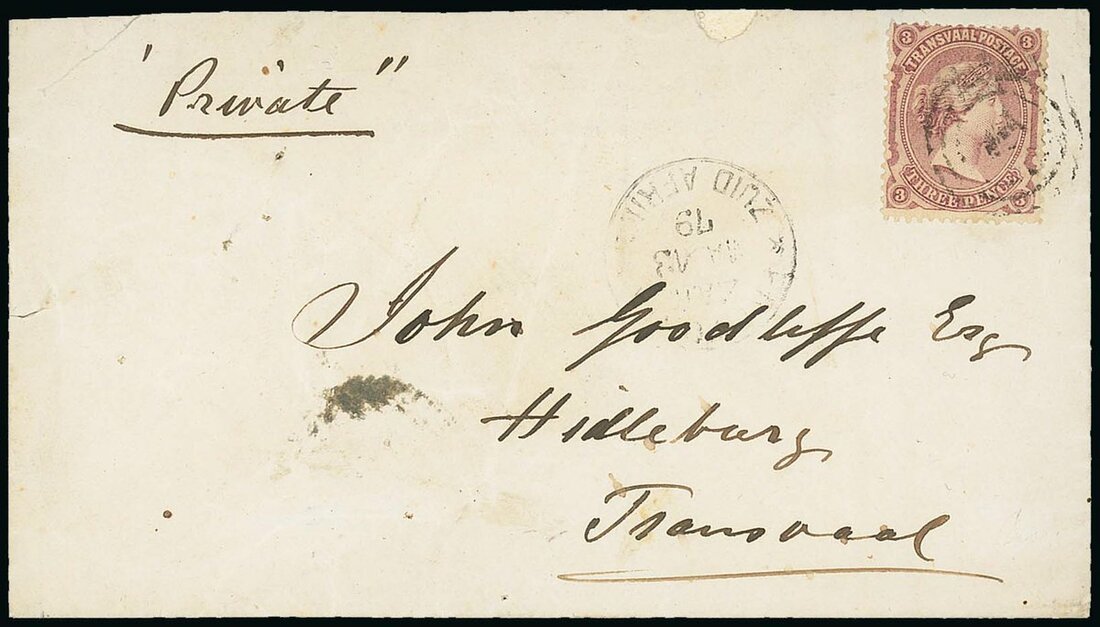 "Private"
3 TRANSVAAL POSTAGE 3
3 THREE PENCE 3
ZUID AFRI
79
13
John Goodliffe Esq
Hidleburg
Transvaal